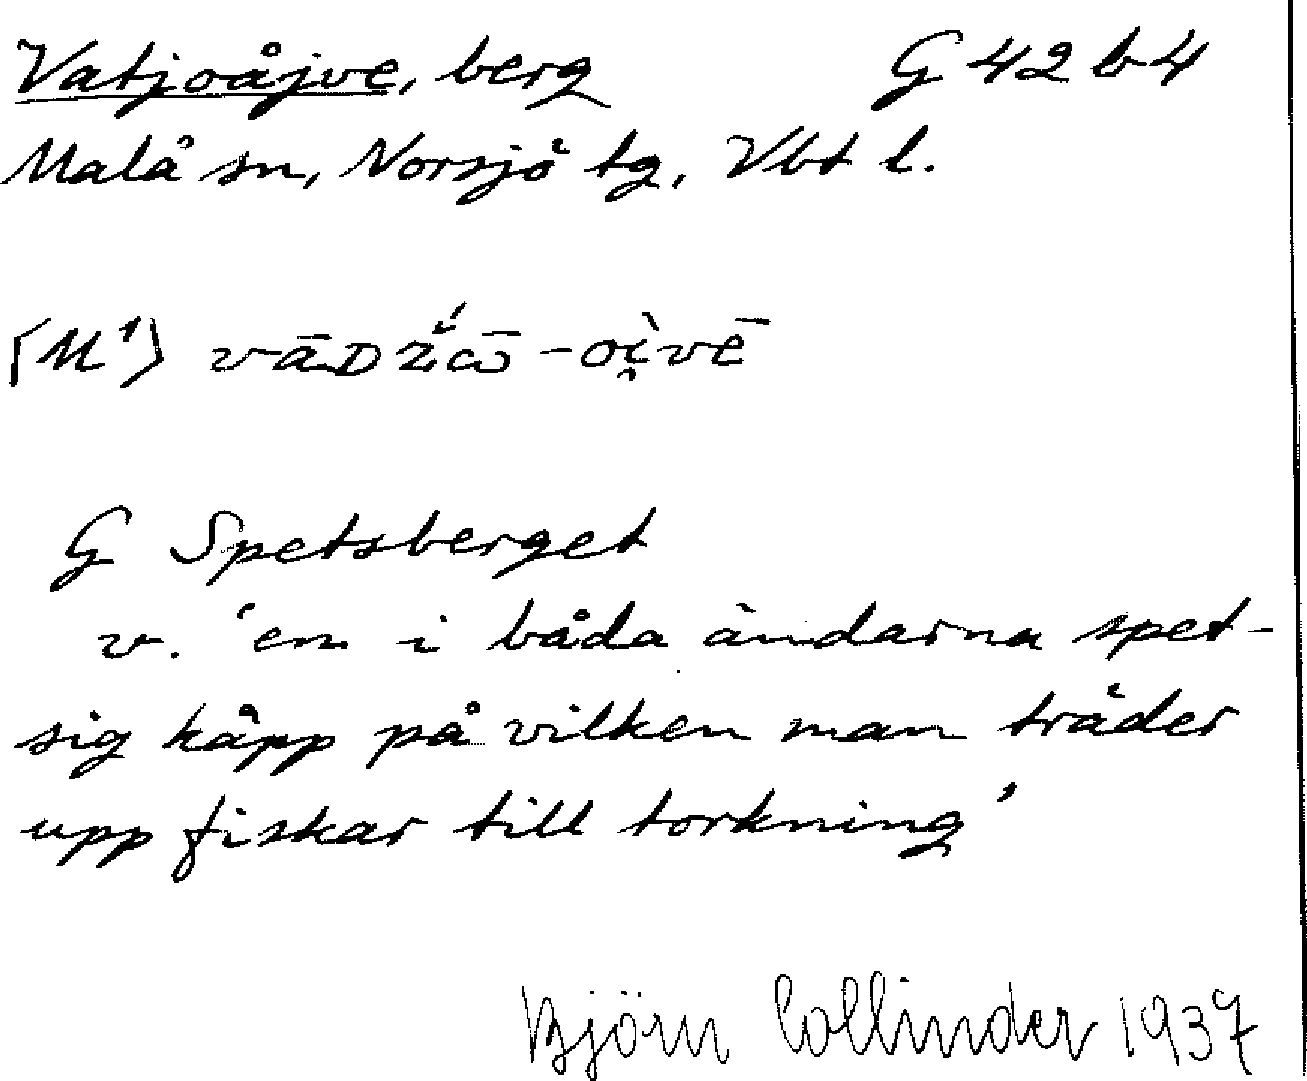 Vatjoåjve, berg G 42 b 4
Malå sn, Norsjö tg, Vbt l.
G Spetsberget
v. 'en i båda ändarna spet-
sig käpp på vilken man träder
upp fiskar till torkning'
Björn Collinder 1937